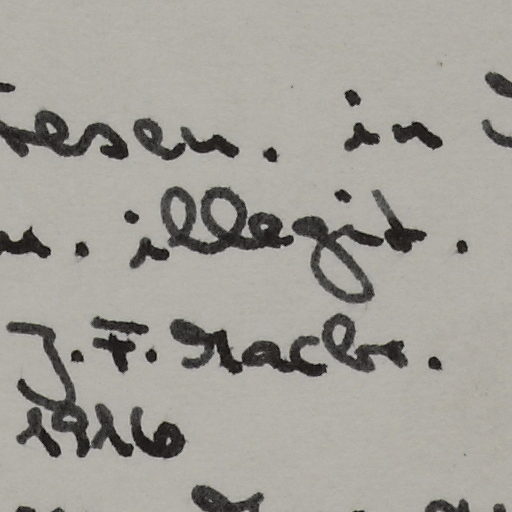 resen. in
. illegit.
J. F. Macbr.
1916